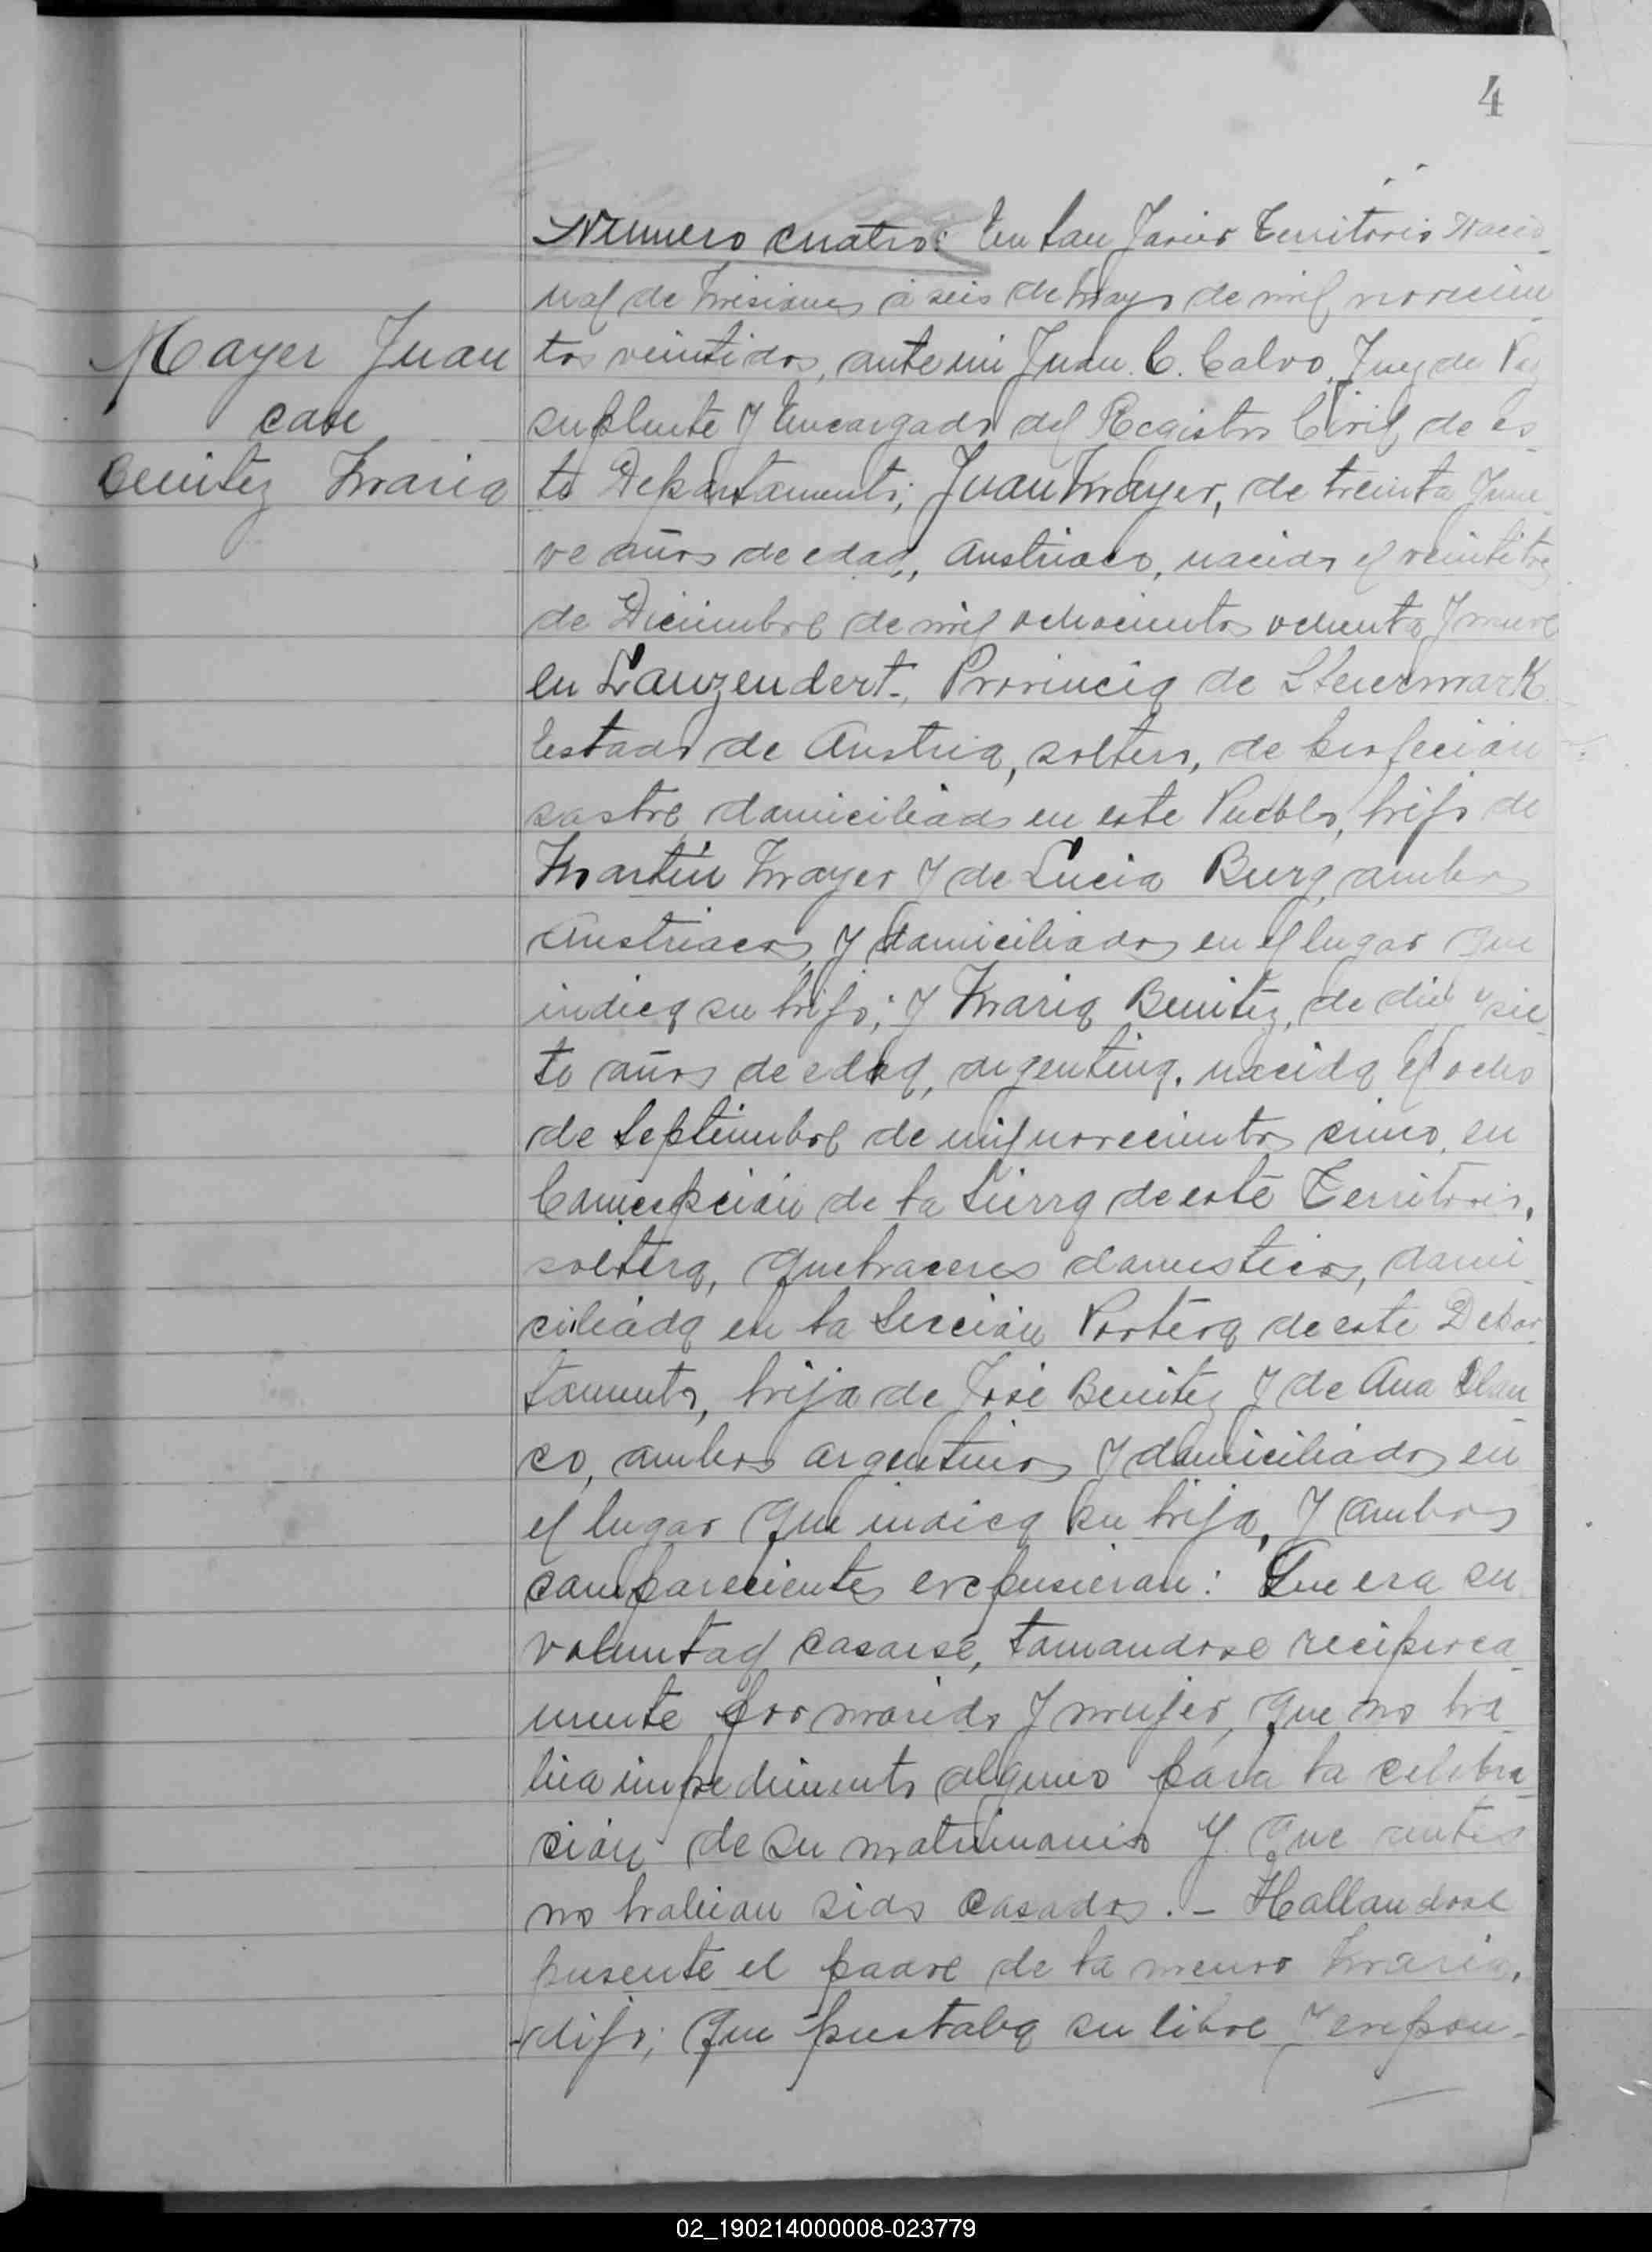 4
Mayer Juan
con
Benitez Maria
Numero cuatro: En San Javier Territorio Nacio-
nal de Misiones á seis de Mayo de mil novecien-
tos veintidos, ante mi Juan C. Calvo, Juez de Paz
suplente y Encargado del Registro Civil de es-
te Departamento; Juan Mayer, de treinta y nue-
ve años de edad, austriaco, nacido el veintitres
de Diciembre de mil ochocientos ochenta y nueve
en Lanzendert., Provincia de Steiermark
Estado de Austria, soltero, de profecion
sastre domiciliado en este Pueblo, hijo de
Martin Mayer y de Lucia Burg, ambos
austriacos, y domiciliados en el lugar que
indica su hijo; y Maria Benitez, de diez y sie-
te años de edad, argentina, nacida el ocho
de Septiembre de mil novecientos cinco, en
Concepción de la Sierra de este Territorio,
soltera, quehaceres domesticos, domi-
ciliada en la Sección Portera de este Depar-
tamento, hija de José Benitez y de Ana Blan-
co, ambos argentinos y domiciliados en
el lugar que indica su hija, y ambos
comparecientes expusieron: Que era su
voluntad casarse, tomandose reciproca-
mente por marido y mujer, que no ha-
bia impedimento alguno para la celebra-
ción de su matrimonio y que antes
no habian sido casados. - Hallandose
presente el padre de la menor Maria,
dijo; que prestaba su libre y expon-
02_190214000008-023779